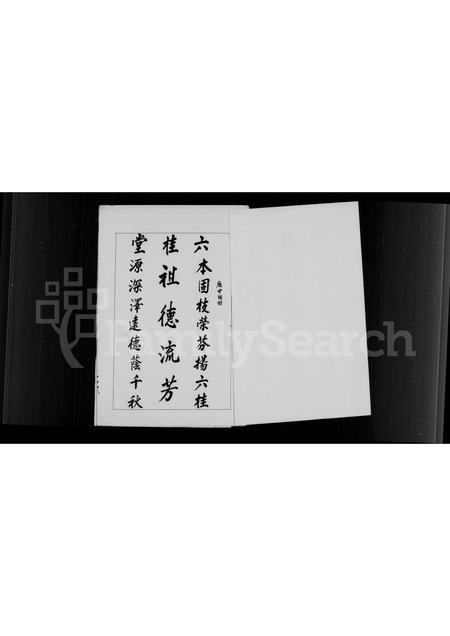 六本固枝榮芬揚六桂
桂祖德流芳
堂源深澤遠德蔭千秋
FamilySearch